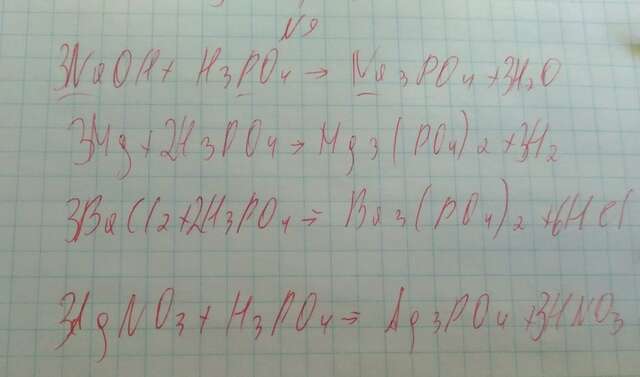 Na
3NaOH + H3PO4 → Na3PO4 + 3H2O
3Mg + 2H3PO4 → Mg3(PO4)2 + 3H2
3BaCl2 + 2H3PO4 → Ba3(PO4)2 + 6HCl
3AgNO3 + H3PO4 → Ag3PO4 + 3HNO3